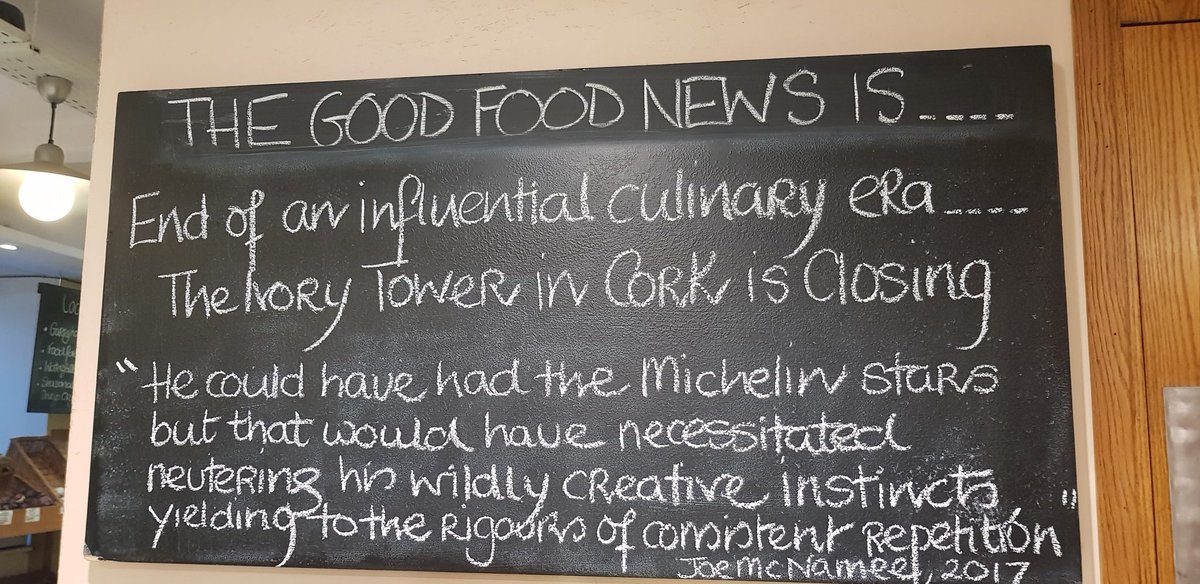 THE GOOD FOOD NEWS IS----
End of an influential culinary era----
The Ivory Tower in Cork is Closing
"He could have had the Michelin stars
but that would have necessitated
neutering his wildly creative instincts,
yielding to the rigours of consistent repetition"
Joe McNamee, 2017